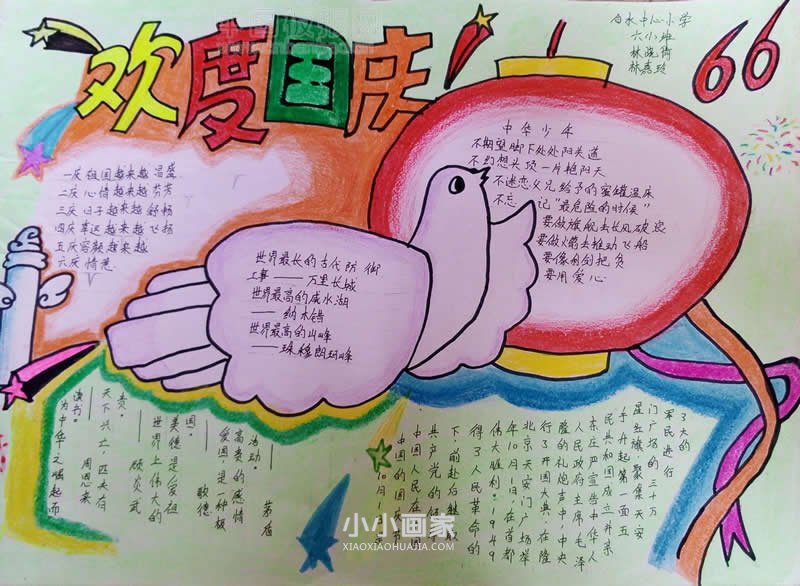 欢度国庆
白水中心小学
六小班
66
一庆祖国越来越昌盛
二庆心情越来越芬芳
三庆日子越来越舒畅
四庆幸运越来越飞扬
五庆容颜越来越
六庆情意
中华少年
不期望脚下处处阳关道
不幻想头顶一片艳阳天
不迷恋父兄给予的蜜罐温床
不忘记“最危险的时候”
要做旗舰去长风破浪
要做火箭去推动飞船
要像利剑把负
要用爱心
世界最长的古代防御
工事——万里长城
世界最高的咸水湖
——纳木错
世界最高的山峰
——珠穆朗玛峰
活动。 茅盾
高素的感情
爱国是一种极
德
国。
美德是爱祖
世界上伟大的
责。 顾炎武
天下兴亡，匹夫有
读书。 周恩来
为中华之崛起而
3天的
军民进行
门广场的三十万
星红旗，聚集天安
手升起第一面五
民共和国成立并亲
东庄严宣告中华人
人民政府主席毛泽
隆的礼炮声中，中央
行了开国大典，在隆
北京天安门广场举
年10月1日，在首都
伟大胜利。1949
得了人民革命的
下，前赴后继，取
共产党的
中国人民在中国
中国的国庆
10月1日
小小画家
XIAOXIAOHUAJIA.COM